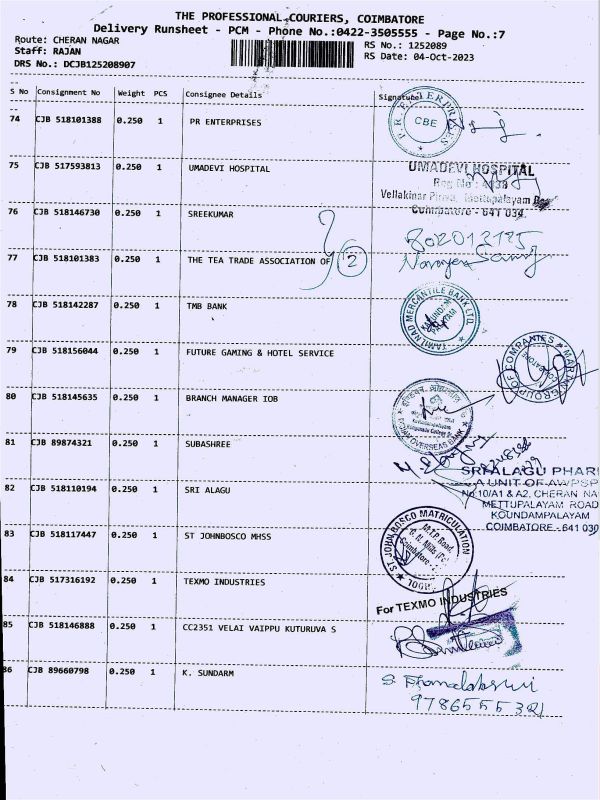 THE PROFESSIONAL COURIERS, COIMBATORE
Delivery Runsheet - PCM - Phone No.:0422-3505555 - Page No.:7
Route: CHERAN NAGAR
RS No.: 1252089
Staff: RAJAN
RS Date: 04-Oct-2023
DRS No.: DCJB125208907
S No Consignment No Weight PCS Consignee Details Signature
74 CJB 518101388 0.250 1 PR ENTERPRISES
CBE
75 CJB 517593813 0.250 1 UMADEVI HOSPITAL
UMADEVI HOSPITAL
Reg No
Vellakinar Mettupalayam
Coimbatore - 641 034
76 CJB 518146730 0.250 1 SREEKUMAR
77 CJB 518101383 0.250 1 THE TEA TRADE ASSOCIATION OF 2
78 CJB 518142287 0.250 1 TMB BANK
TAMILNAD MERCANTILE BANK LTD.
79 CJB 518156044 0.250 1 FUTURE GAMING & HOTEL SERVICE
MARTIN GROUP OF COMPANIES
COIMBATORE
80 CJB 518145635 0.250 1 BRANCH MANAGER IOB
OVERSEAS BANK
81 CJB 89874321 0.250 1 SUBASHREE
82 CJB 518110194 0.250 1 SRI ALAGU
SRI ALAGU PHAR
A UNIT OF AWPSP
No.10/A1 & A2, CHERAN NA
METTUPALAYAM ROAD
KOUNDAMPALAYAM
COIMBATORE - 641 030
83 CJB 518117447 0.250 1 ST JOHNBOSCO MHSS
ST JOHN BOSCO MATRICULATION
M.T.P. Road,
G. N. Mills
Coimbatore
84 CJB 517316192 0.250 1 TEXMO INDUSTRIES
For TEXMO INDUSTRIES
85 CJB 518146888 0.250 1 CC2351 VELAI VAIPPU KUTURUVA S
86 CJB 89660798 0.250 1 K. SUNDARM